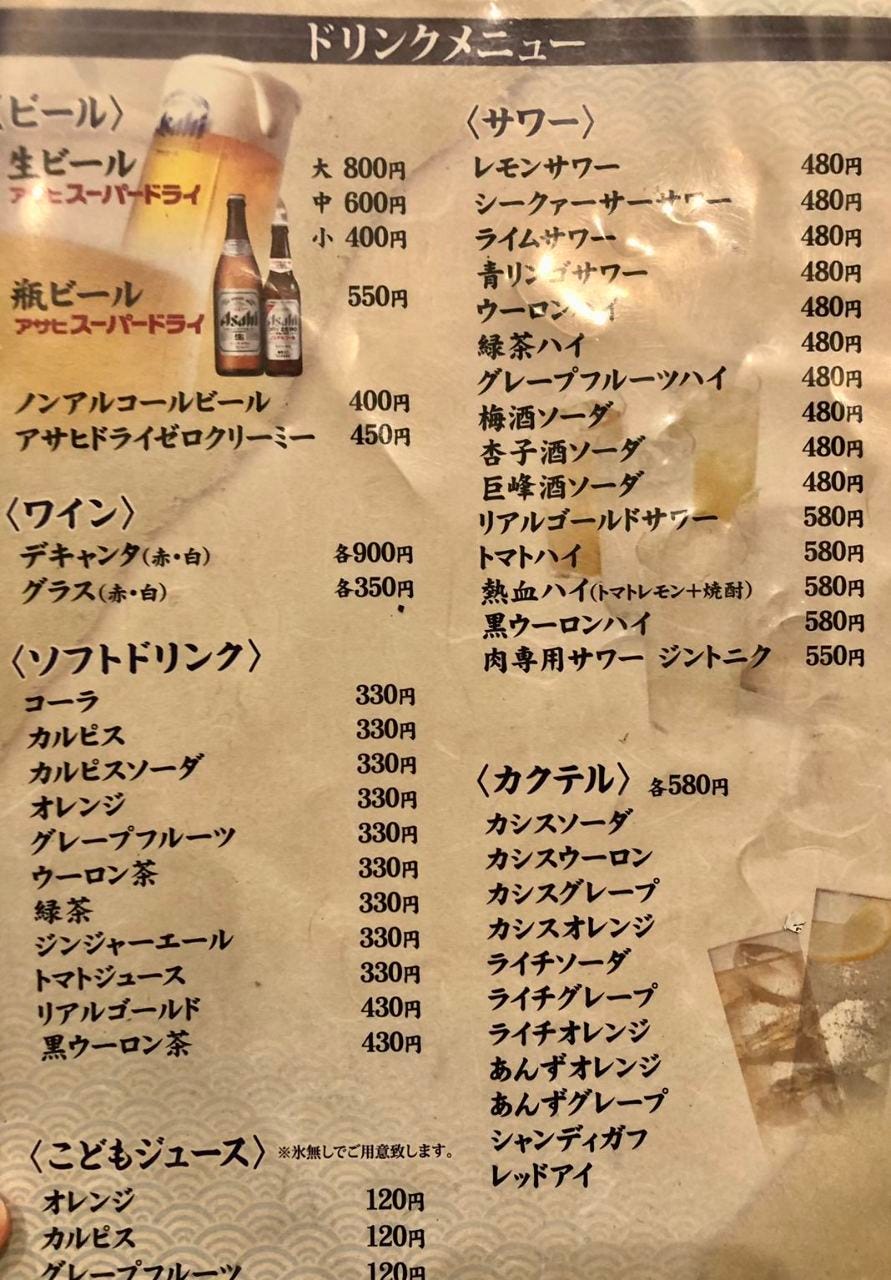 ドリンクメニュー
〈ビール〉
生ビール 大 800円
アサヒスーパードライ 中 600円
小 400円
瓶ビール 550円
アサヒスーパードライ
ノンアルコールビール 400円
アサヒドライゼロクリーミー 450円
〈ワイン〉
デキャンタ(赤・白) 各900円
グラス(赤・白) 各350円
〈ソフトドリンク〉
コーラ 330円
カルピス 330円
カルピスソーダ 330円
オレンジ 330円
グレープフルーツ 330円
ウーロン茶 330円
緑茶 330円
ジンジャーエール 330円
トマトジュース 330円
リアルゴールド 430円
黒ウーロン茶 430円
〈こどもジュース〉 ※氷無しでご用意致します。
オレンジ 120円
カルピス 120円
グレープフルーツ 120円
〈サワー〉
レモンサワー 480円
シークァーサーサワー 480円
ライムサワー 480円
青リンゴサワー 480円
ウーロンハイ 480円
緑茶ハイ 480円
グレープフルーツハイ 480円
梅酒ソーダ 480円
杏子酒ソーダ 480円
巨峰酒ソーダ 480円
リアルゴールドサワー 580円
トマトハイ 580円
熱血ハイ(トマトレモン+焼酎) 580円
黒ウーロンハイ 580円
肉専用サワー ジントニク 550円
〈カクテル〉 各580円
カシスソーダ
カシスウーロン
カシスグレープ
カシスオレンジ
ライチソーダ
ライチグレープ
ライチオレンジ
あんずオレンジ
あんずグレープ
シャンディガフ
レッドアイ
Asahi
生
Asahi